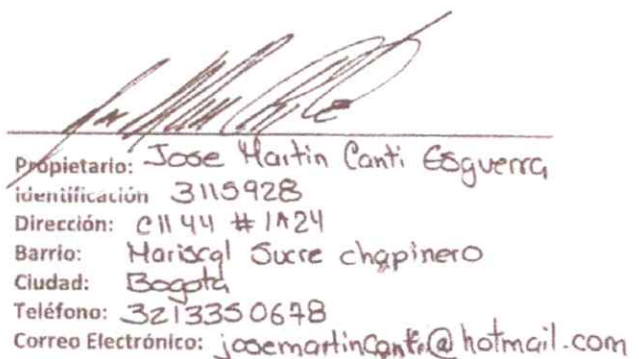 Propietario: Jose Martin Canti Esguerra
identificación 3115928
Dirección: Cll 44 # 1A24
Barrio: Mariscal Sucre chapinero
Ciudad: Bogotá
Teléfono: 3213350678
Correo Electrónico: josemartincanti@hotmail.com